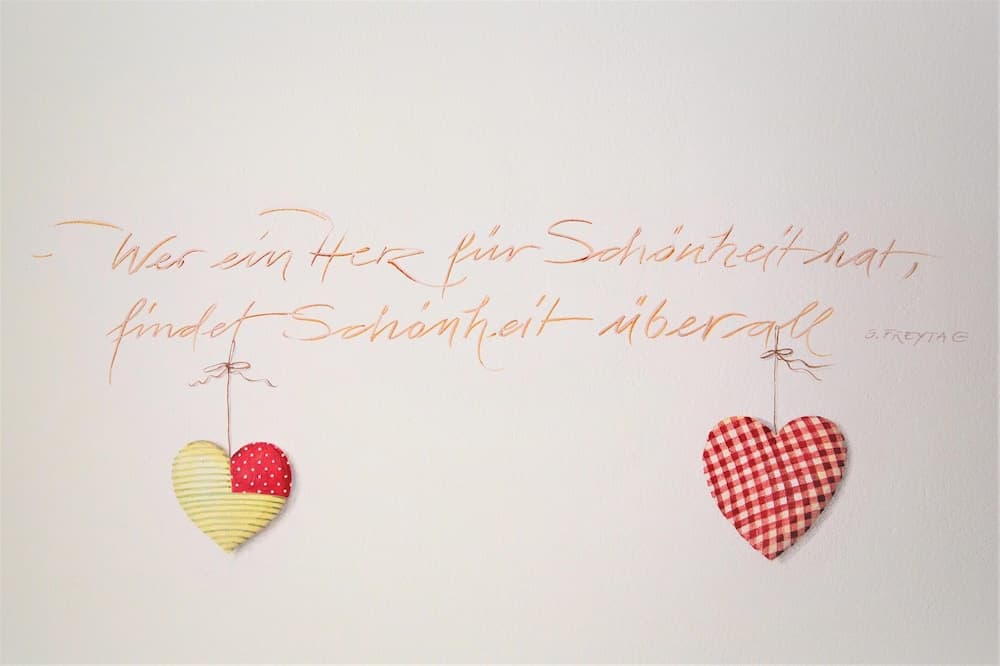 Wer ein Herz für Schönheit hat,
findet Schönheit überall
S. FREYTAG